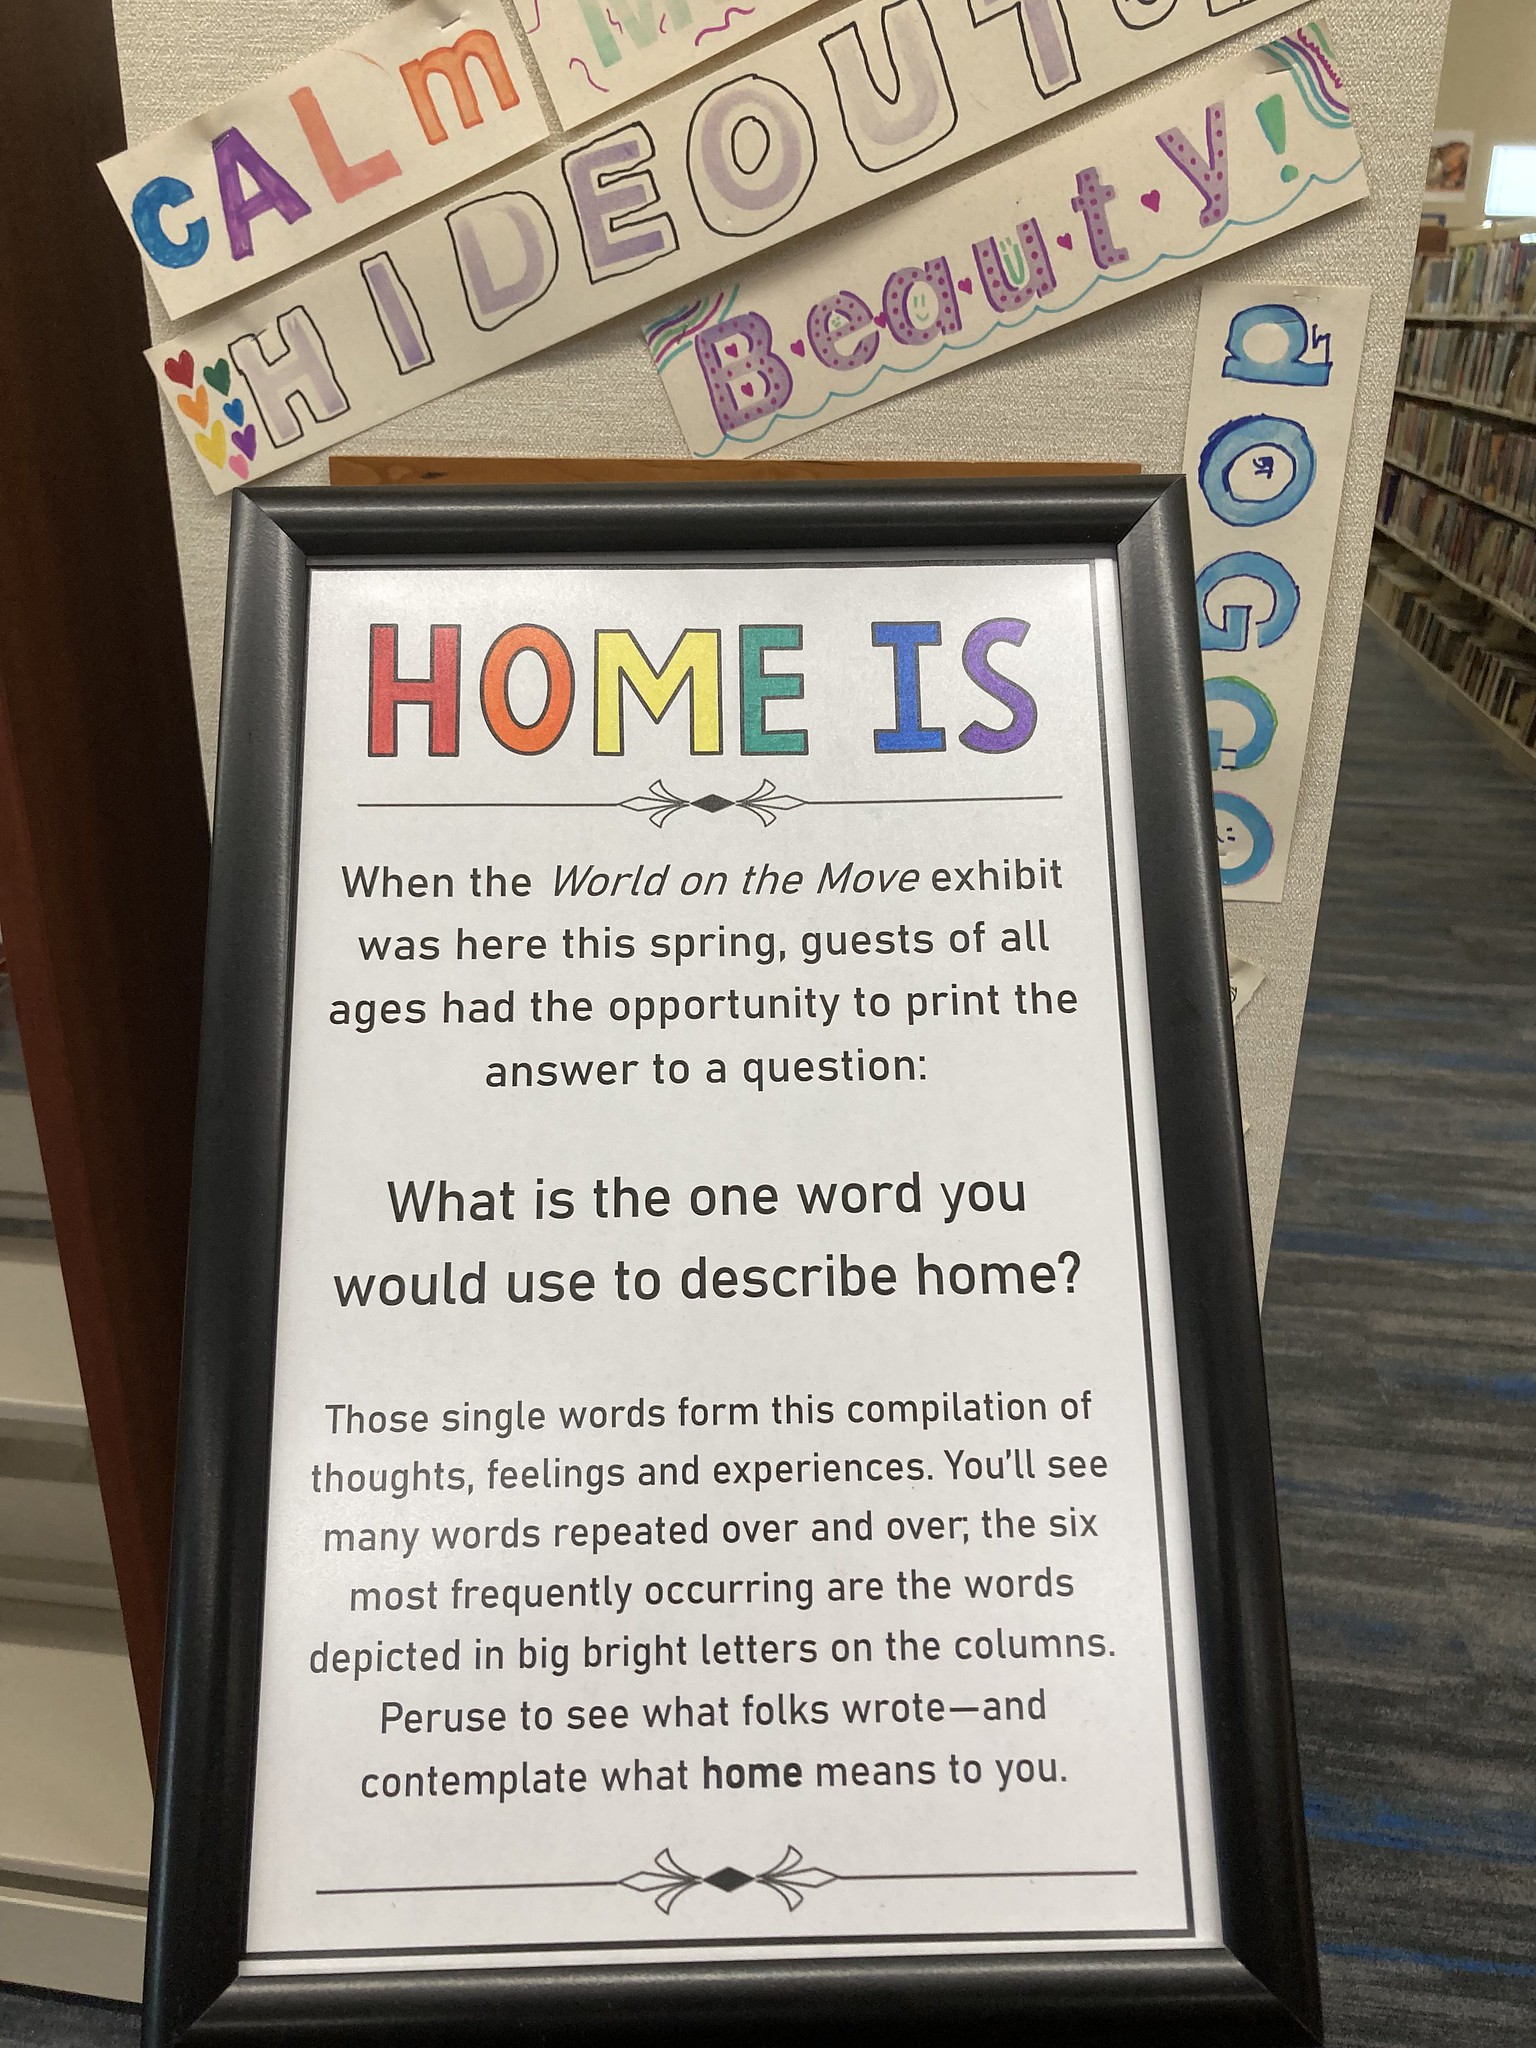 CALm
HIDEOUT
Beauty!
dOGGO
HOME IS
When the World on the Move exhibit
was here this spring, guests of all
ages had the opportunity to print the
answer to a question:
What is the one word you
would use to describe home?
Those single words form this compilation of
thoughts, feelings and experiences. You'll see
many words repeated over and over; the six
most frequently occurring are the words
depicted in big bright letters on the columns.
Peruse to see what folks wrote—and
contemplate what home means to you.